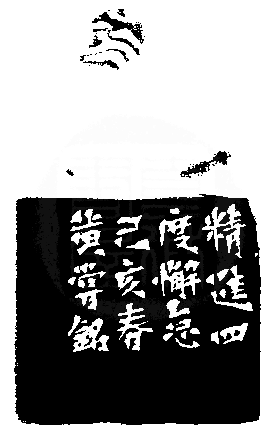 精進四
度懈怠
己亥春
黃嘗銘